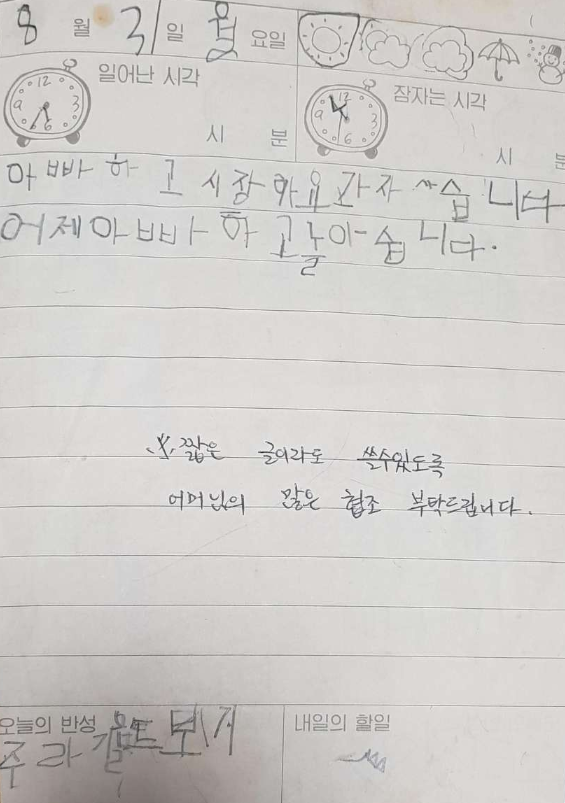 8 월 31 일 월 요일
일어난 시각
12 3 6 9
시 분
잠자는 시각
12 3 6 9
시 분
아빠하고 시장 과자 씁니다
어제아빠하고놀아습니다.
※ 짧은 글이라도 쓸수있도록
어머님의 많은 협조 부탁드립니다.
오늘의 반성
내일의 할일